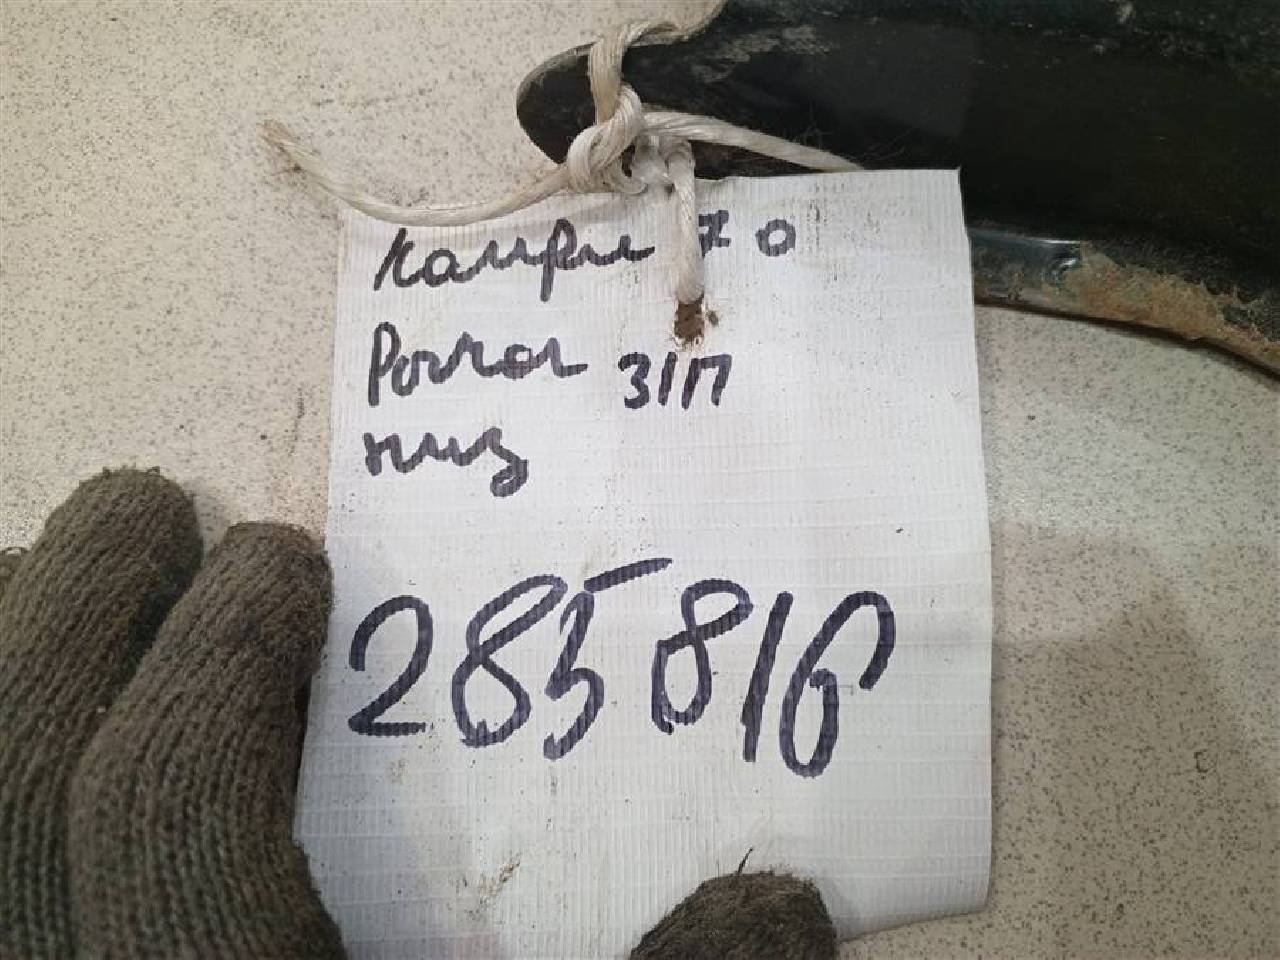 Камри 70
Рычаг З/П
низ
285816